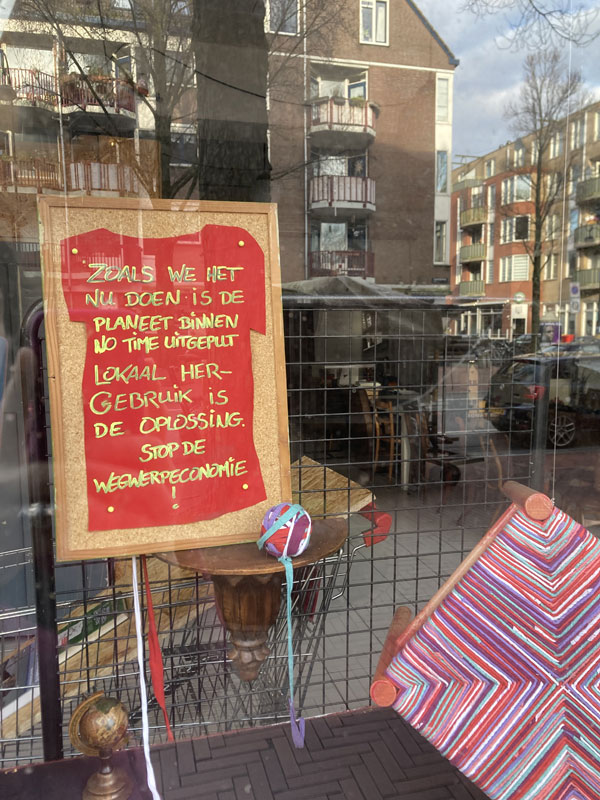 ZOALS WE HET
NU DOEN IS DE
PLANEET BINNEN
NO TIME UITGEPUT
LOKAAL HER-
GEBRUIK IS
DE OPLOSSING.
STOP DE
WEGWERPECONOMIE
!